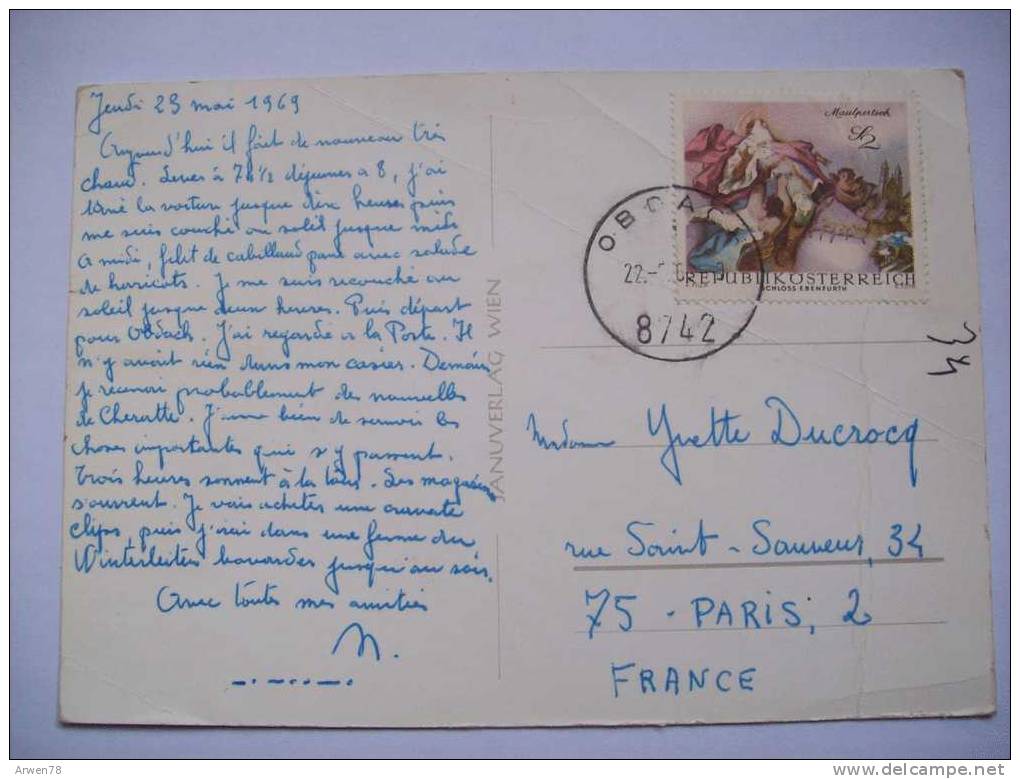 Jeudi 23 mai 1969
Aujourd'hui il fait de nouveau très
chaud. Levés à 7h½ déjeuner à 8, j'ai
lavé la voiture jusque dix heures puis
me suis couché au soleil jusque midi
A midi, filet de cabillaud pané avec salade
de harricots. Je me suis recouché au
soleil jusque deux heures. Puis départ
pour Obdach. J'ai regardé à la Poste. Il
n'y avait rien dans mon casier. Demain
je recevrai probablement des nouvelles
de Cheratte. J'aime bien de savoir les
choses importantes qui s'y passent.
Trois heures sonnent à la tour. Les magasins
s'ouvrent. Je vais acheter une cravate
clips, puis j'irai dans une ferme du
Winterleiten bavarder jusqu'au soir.
Avec toutes mes amitiés
N.
JANUVERLAG WIEN
Maulpertsch
S2
REPUBLIK ÖSTERREICH
SCHLOSS EBENFURTH
OBDA
22.-
8742
34
Madame Yvette Ducrocq
rue Saint-Sauveur, 34
75 - PARIS, 2
FRANCE
Arwen78
delcampe.net